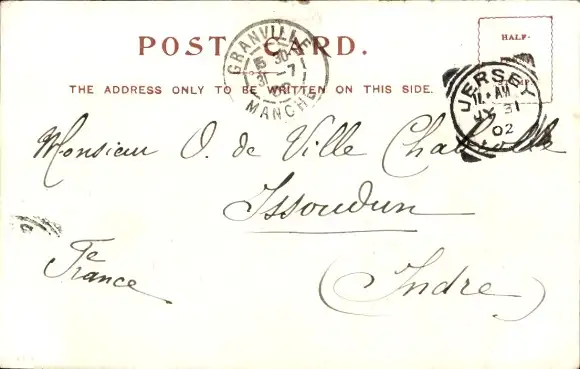 POST CARD.
THE ADDRESS ONLY TO BE WRITTEN ON THIS SIDE.
HALF-
GRANVILLE
15 30
31 -7
02
MANCHE
JERSEY
11. AM
JY 31
02
Monsieur O. de Ville
Issoudun
Fce
France
(Indre)